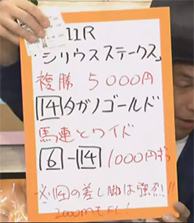 11R
シリウスステークス
複勝 5000円
14 タガノゴールド
馬連とワイド
6-14 1000円ずつ
14の差し脚は強烈!!
2000mもドレ!